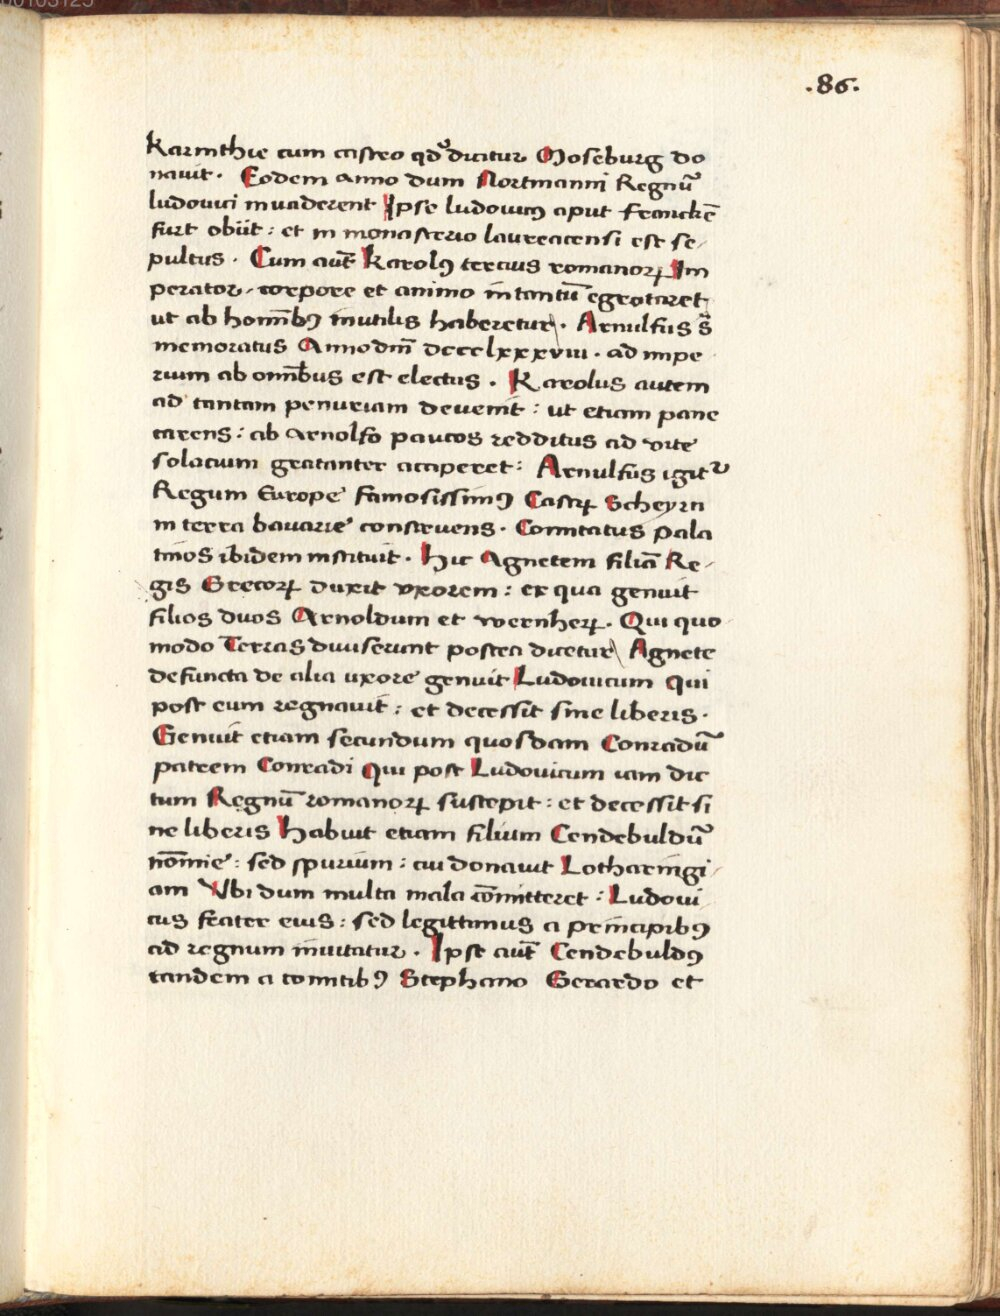 00103125
.86.
karinthie cum castro qđ dicitur Moseburg do
nauit. Eodem anno dum Nortmanni Regnū
ludouici inuaderent Ipse ludouicꝰ aput franckē
furt obiit: et in monasterio laureacensi est se-
pultus. Cum aūt karolꝰ tercius romanorꝝ Im
perator, corpore et animo intantū egrotaret,
ut ab homībꝰ inutilis haberetur. Arnulfus s̄
memoratus Anno dn̄i dccclxxxviii. ad impe
rium ab omībus est electus. Karolus autem
ad tantam penuriam deuenit: ut etiam pane
carens: ab Arnolfo paucos redditus ad vite
solacium gratanter acciperet: Arnulfus igitᷣ
Regum Europe famosissimꝰ Castrꝝ Scheyrn
in terra bauarie construens. Comitatus pala
tinos ibidem instituit. hic Agnetem filiā Re-
gis Grecorꝝ duxit vxorem: ex qua genuit
filios duos Arnoldum et wernherꝝ. Qui quo
modo Terras diuiserunt postea dicetur Agnete
defuncta de alia uxore genuit Ludouicum qui
post eum regnauit: et decessit sine liberis.
Genuit etiam secundum quosdam Conradū
patrem Conradi Qui post Ludouicum iam dic
tum Regnū romanorꝝ suscepit: et decessit si
ne liberis habuit etiam filium Cendebuldū
nōmine: sed spurium: cui donauit Lotharingi-
am Vbi dum multa mala cōmitteret: Ludoui
cus frater eius: sed legittimus a principibꝰ
ad regnum inuitatur. Ipse aūt Cendebuldꝰ
tandem a comitibꝰ Stephano Gerardo et